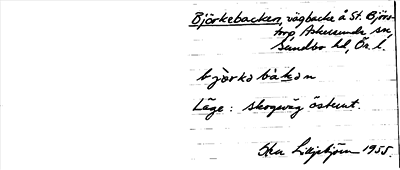 Björkebacken, vägbacke å St. Björs-
torp Askersunds sn,
Sundbo hd, Ör. l.
björkəbakən
Läge: skogsväg österut.
Lilljebjörn 1955.